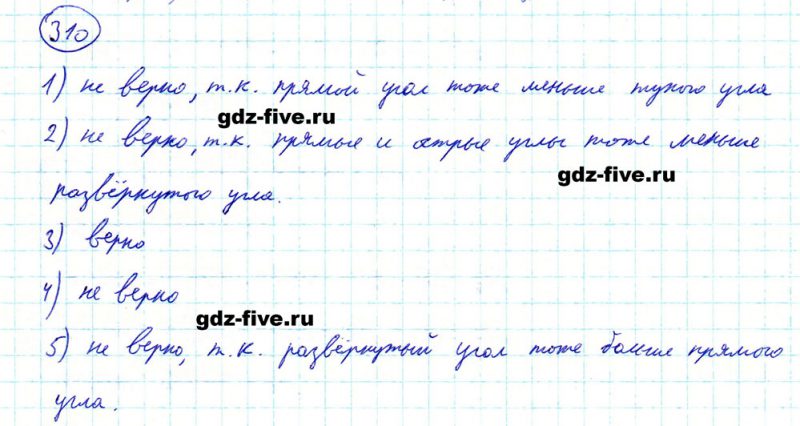 310
1) не верно, т.к. прямой угол тоже меньше тупого угла
gdz-five.ru
2) не верно, т.к. прямые и острые углы тоже меньше
gdz-five.ru
развёрнутого угла.
3) верно
4) не верно
gdz-five.ru
5) не верно, т.к. развёрнутый угол тоже больше прямого
угла.